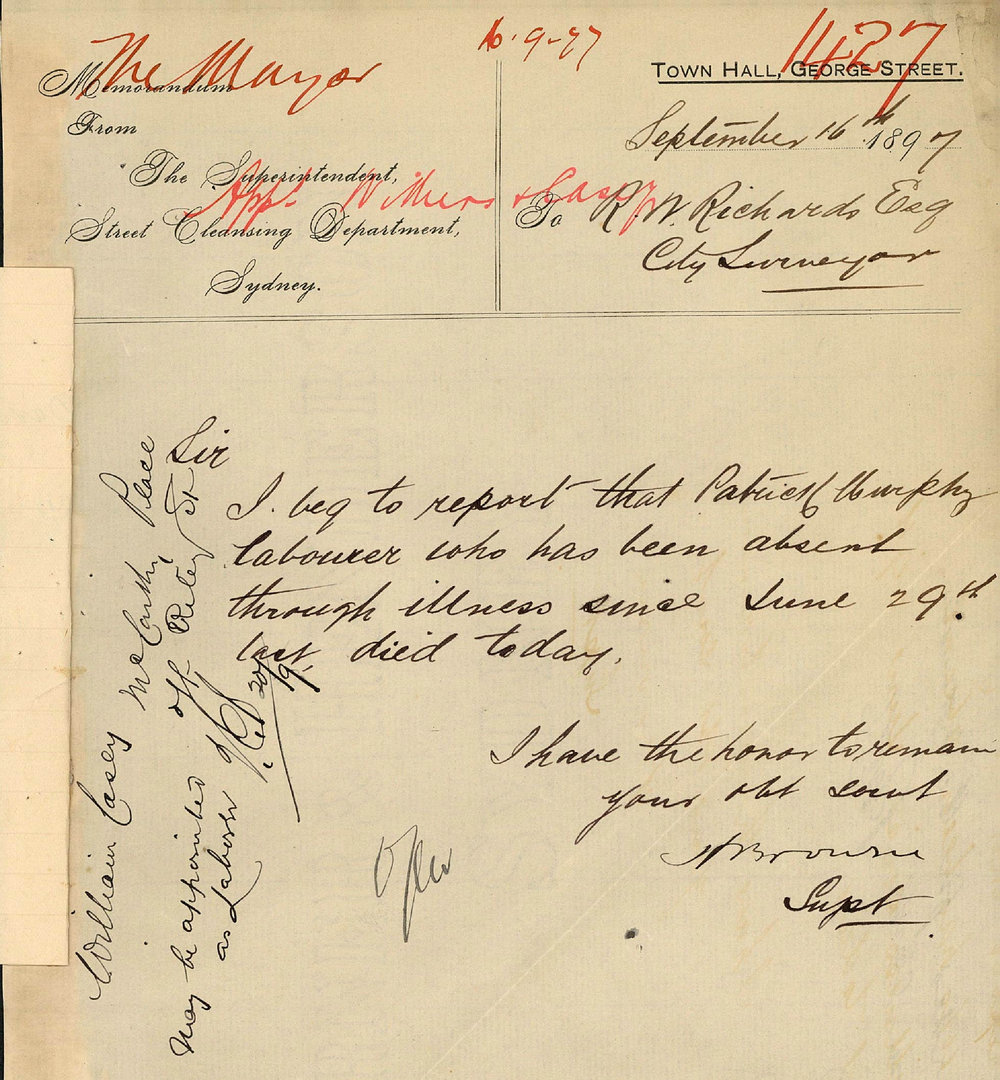 The Mayor
16.9-97
1427
Memorandum
TOWN HALL, GEORGE STREET.
From
September 16th 1897
The Superintendent,
App. Withers & Casey
To R. W. Richards Esq
Street Cleansing Department,
City Surveyor
Sydney.
Sir
I beg to report that Patrick Murphy
labourer who has been absent
through illness since June 29th
last, died today.
I have the honor to remain
your obt servt
Browne
Supt
William Casey McCarthy Place
off Riley St
May be appointed
as Laborer
20/9